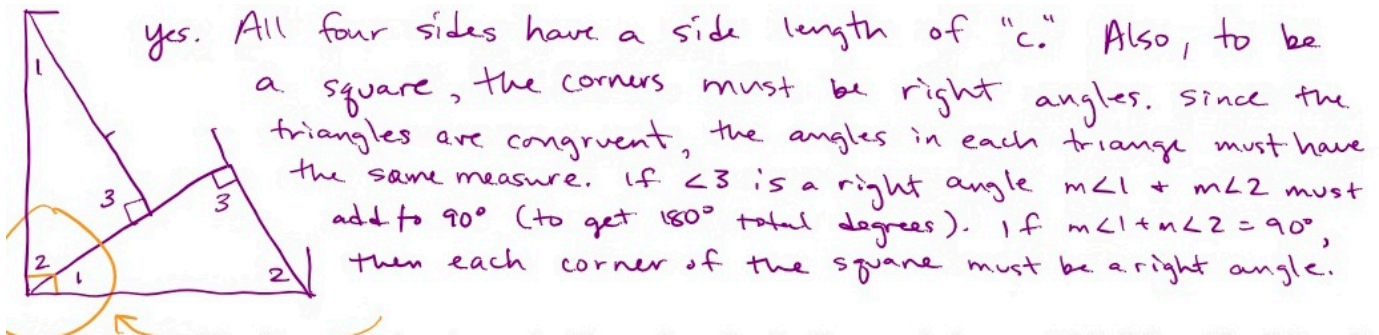 yes. All four sides have a side length of "c." Also, to be
a square, the corners must be right angles. Since the
triangles are congruent, the angles in each triange must have
the same measure. If <3 is a right angle m<1 + m<2 must
add to 90° (to get 180° total degrees). If m<1+m<2 = 90°,
then each corner of the square must be a right angle.
1
3
3
2
1
2